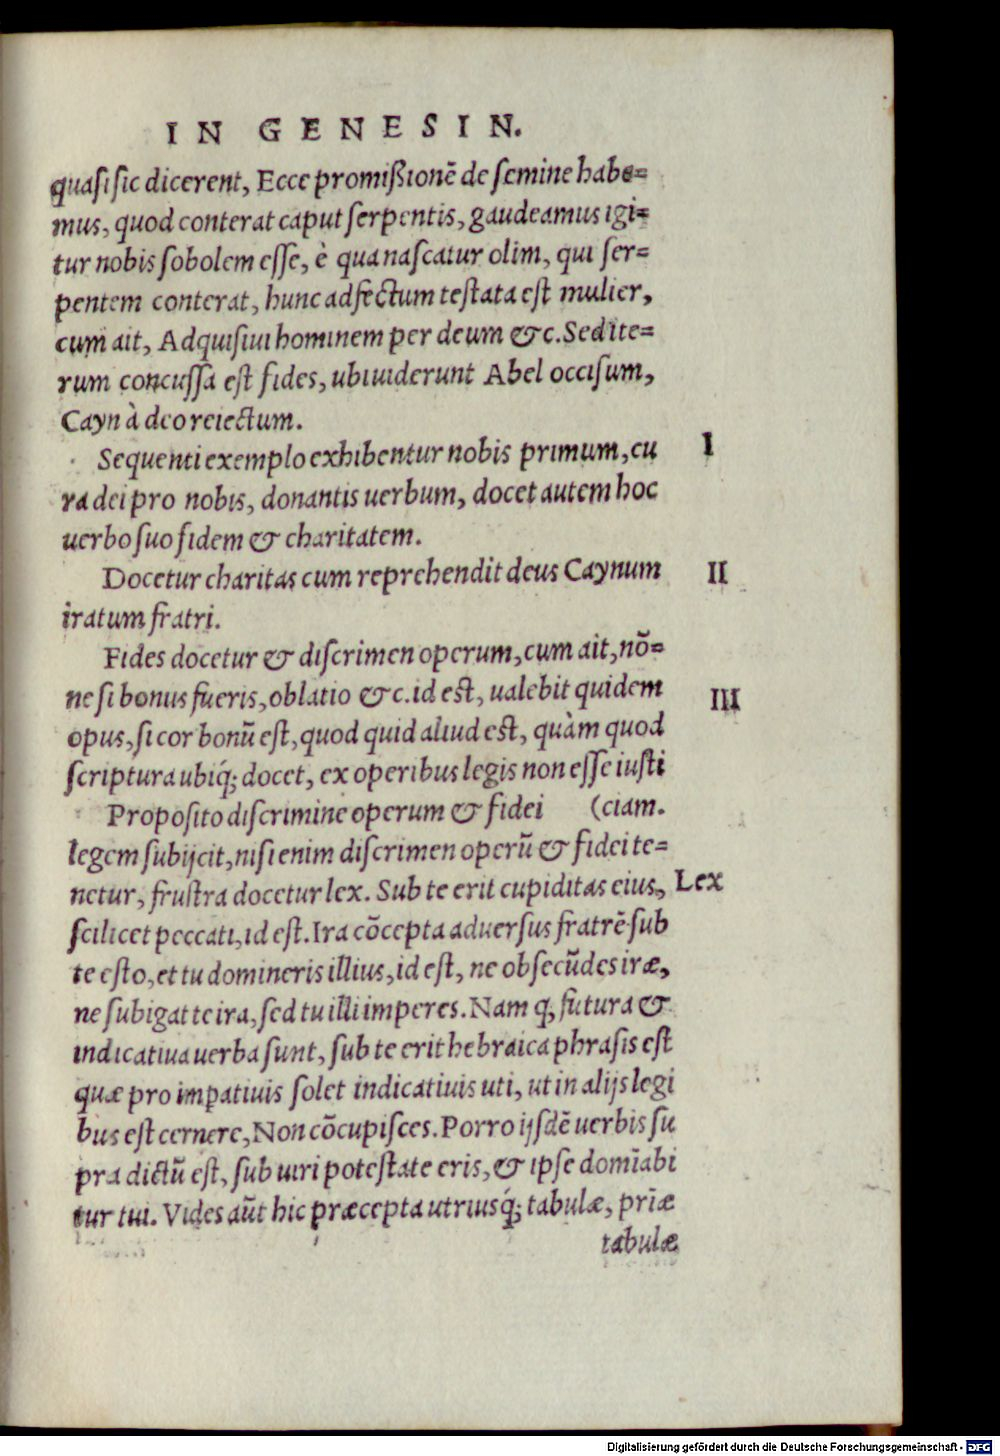 IN GENESIN.
quasi sic dicerent, Ecce promißionē de semine habe=
mus, quod conterat caput serpentis, gaudeamus igi=
tur nobis sobolem esse, è qua nascatur olim, qui ser=
pentem conterat, hunc adfectum testata est mulier,
cum ait, Adquisiui hominem per deum & c. Sed ite=
rum concussa est fides, ubi uiderunt Abel occisum,
Cayn à deo reiectum.
Sequenti exemplo exhibentur nobis primum, cu I
ra dei pro nobis, donantis uerbum, docet autem hoc
uerbo suo fidem & charitatem.
Docetur charitas cum reprehendit deus Caynum II
iratum fratri.
Fides docetur & discrimen operum, cum ait, nō=
ne si bonus fueris, oblatio & c. id est, ualebit quidem III
opus, si cor bonū est, quod quid aliud est, quàm quod
scriptura ubiq; docet, ex operibus legis non esse iusti
Proposito discrimine operum & fidei (ciam.
legem subijcit, nisi enim discrimen operū & fidei te=
netur, frustra docetur lex. Sub te erit cupiditas eius, Lex
scilicet peccati, id est. Ira cōcepta aduersus fratrē sub
te esto, et tu domineris illius, id est, ne obsecūdes iræ,
ne subigat te ira, sed tu illi imperes. Nam q, futura &
indicatiua uerba sunt, sub te erit hebraica phrasis est
quæ pro impatiuis solet indicatiuis uti, ut in alijs legi
bus est cernere, Non cōcupisces. Porro ijsdē uerbis su
pra dictū est, sub uiri potestate eris, & ipse domīabi
tur tui. Vides aūt hic præcepta utriusq́; tabulæ, prīæ
tabulæ
Digitalisierung gefördert durch die Deutsche Forschungsgemeinschaft - DFG